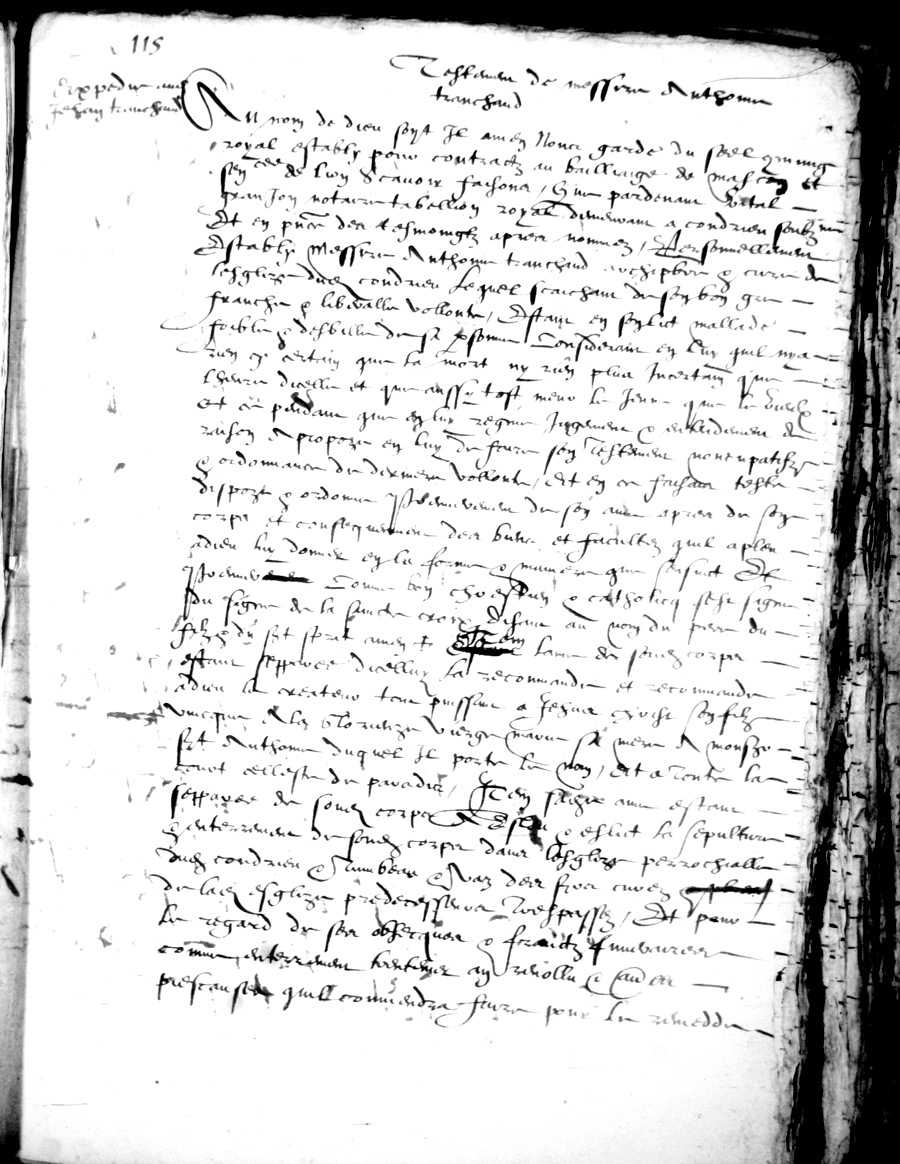 115
Testament de messire Anthoine
tranchand
Expedie aud
Jehan tranchand
Au nom de dieu soyt Il amen Nous garde du seel commung
royal estably pour contractz au bailliage de mascon et
sen.cee de lion Scavoir faisons / Que pardevant Vital
Granjon notaire tabellion royal demeurant a condrieu soubzne
Et en pnce des tesmoingtz apres nommez / Personnellement
Estably Messire Anthoine tranchand archipbre & cure de
lesglize dud condrieu Lequel scaichant de son bon gre
franche & liberalle vollonte / Estant en son lict mallade
foible & debille de sa psonne Considerant en luy quil nya
rien sy certain que la mort ny rien plus Incertain que
lheure dicelle et que aussy tost meur le Jeune que le vieulx
Et ce pendant que en luy regne Jugement & entendement de
raison A propoze en luy de faire son testement noncupatifz
& ordonnance de derniere vollonte / Et en ce faisant teste
dispoze & ordonne Premierement de son ame apres de son
corps et consecquemment des biens et facultez quil a pleu
adieu luy donner en la forme & maniere que sensuict Et
Premier Comme bon chrestien & catholicq sest signe
du signe de la saincte croix disant au nom du pere du
filz & du sct sprit amen + Item lame de sond corps
estant seppare dicelluy la recommande et recommande
adieu le createur tout puissant a Jesus christ son filz
unicque A la glorieuze vierge marie sa mere A monsr
sct Anthoine duquel Il porte le nom / Et a toute la
court celleste de paradis / Item sadite ame estant
sepparee de sond corps A esleu & eslict la sepulture
& enterrement de sond corps dans lesglize perrochialle
dud condrieu & tumbeau & vaz des feuz curez
de lad esglize predecesseurs trespassez / Et pour
le regard de ses obsecques & fraictz funeraires
comme enterrement
quil conviendra faire pour le remedde